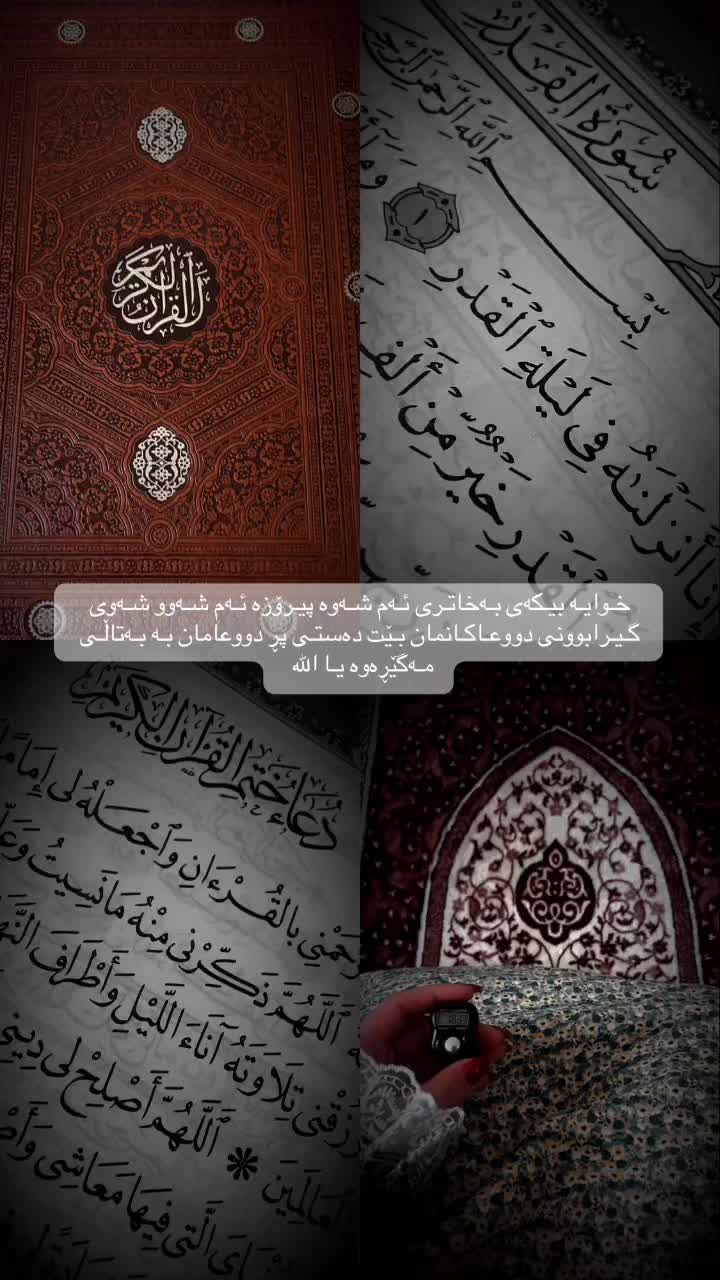 القرآن الكريم
سُورَةُ القَدْرِ
بِسْمِ اللَّهِ الرَّحْمَٰنِ الرَّحِيمِ
إِنَّا أَنزَلْنَٰهُ فِي لَيْلَةِ الْقَدْرِ ١ وَمَا
الْقَدْرِ خَيْرٌ مِّنْ أَلْفِ
خوایە بیکەی بەخاتری ئەم شەوە پیرۆزە ئەم شەوو شەوی
گیرابوونی دووعاکانمان بێت دەستی پڕ دووعامان بە بەتاڵی
مەگێڕەوە یا الله
دُعَاءُ خَتْمِ القُرْآنِ الكَرِيمِ
ارْحَمْنِي بِالقُرْءَانِ وَاجْعَلْهُ لِي إِمَامًا
اللَّهُمَّ ذَكِّرْنِي مِنْهُ مَا نَسِيتُ
تِلَاوَتَهُ آنَاءَ اللَّيْلِ وَأَطْرَافَ النَّهَارِ
العَالَمِينَ * اللَّهُمَّ أَصْلِحْ لِي دِينِي
الَّتِي فِيهَا مَعَاشِي